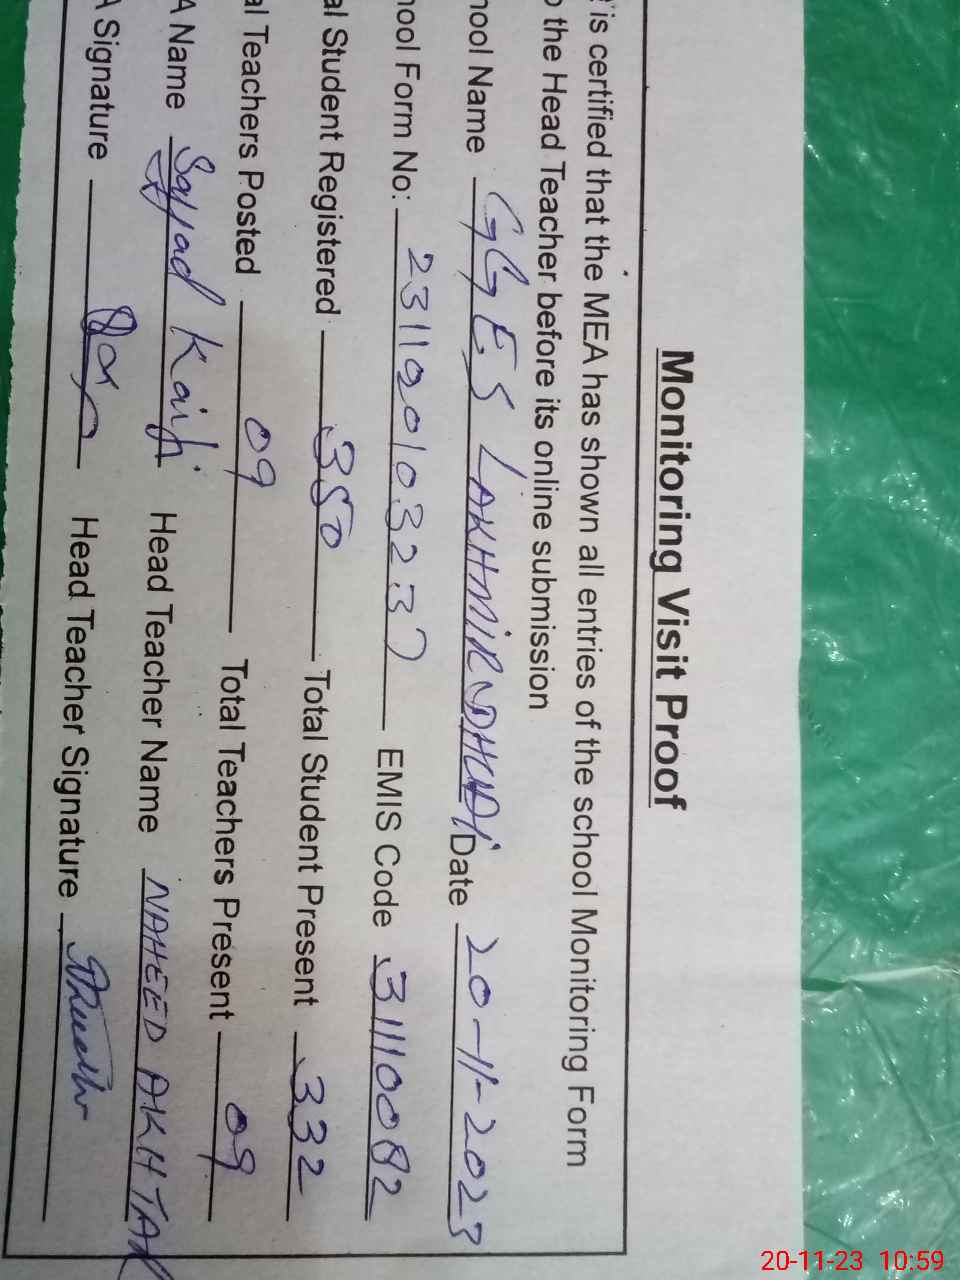 Monitoring Visit Proof
is certified that the MEA has shown all entries of the school Monitoring Form
the Head Teacher before its online submission
hool Name GGES LAKHMIR Date 20-11-2023
hool Form No: 2311920103237 EMIS Code 31110082
al Student Registered 350 Total Student Present 332
al Teachers Posted 09 Total Teachers Present 09
A Name Sajjad Head Teacher Name NAHEED AKHTAR
A Signature Head Teacher Signature
20-11-23 10:59